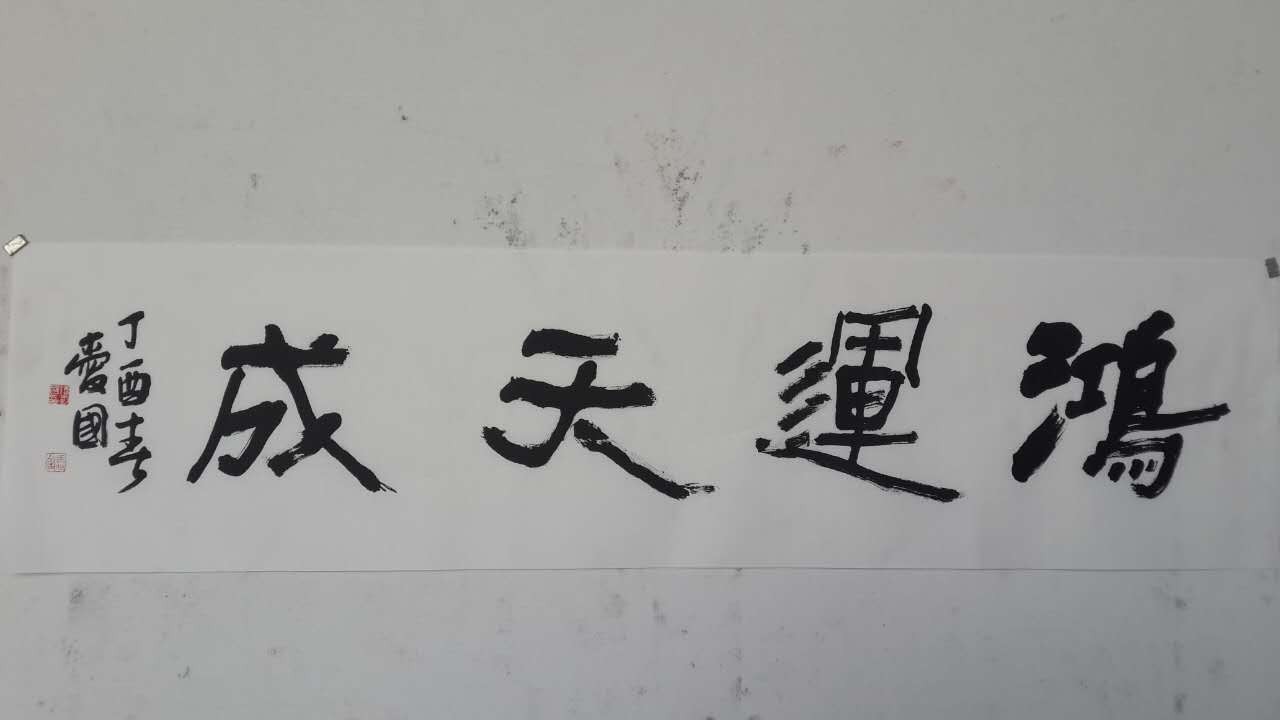 鴻運天成
丁酉春
愛國